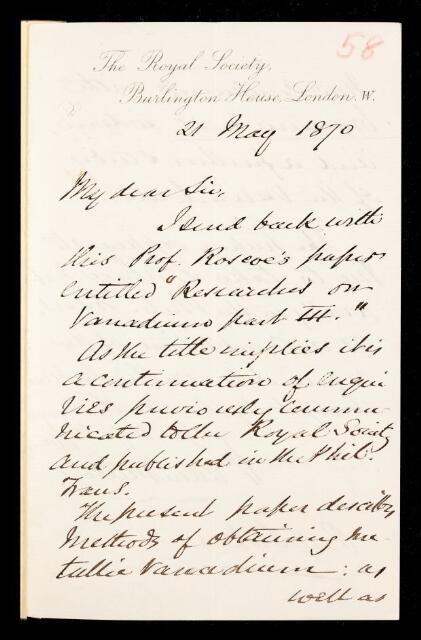 58
The Royal Society,
Burlington House, London. W.
21 May 1870
My dear Sir,
I send back with
this Prof. Roscoe's paper
entitled "Researches on
Vanadium part III."
As the title implies it is
a continuation of enqui
ries previously commu
nicated to the Royal Society
and published in the Phil.
Trans.
The present paper describes
methods of obtaining me
tallic Vanadium: as
well as